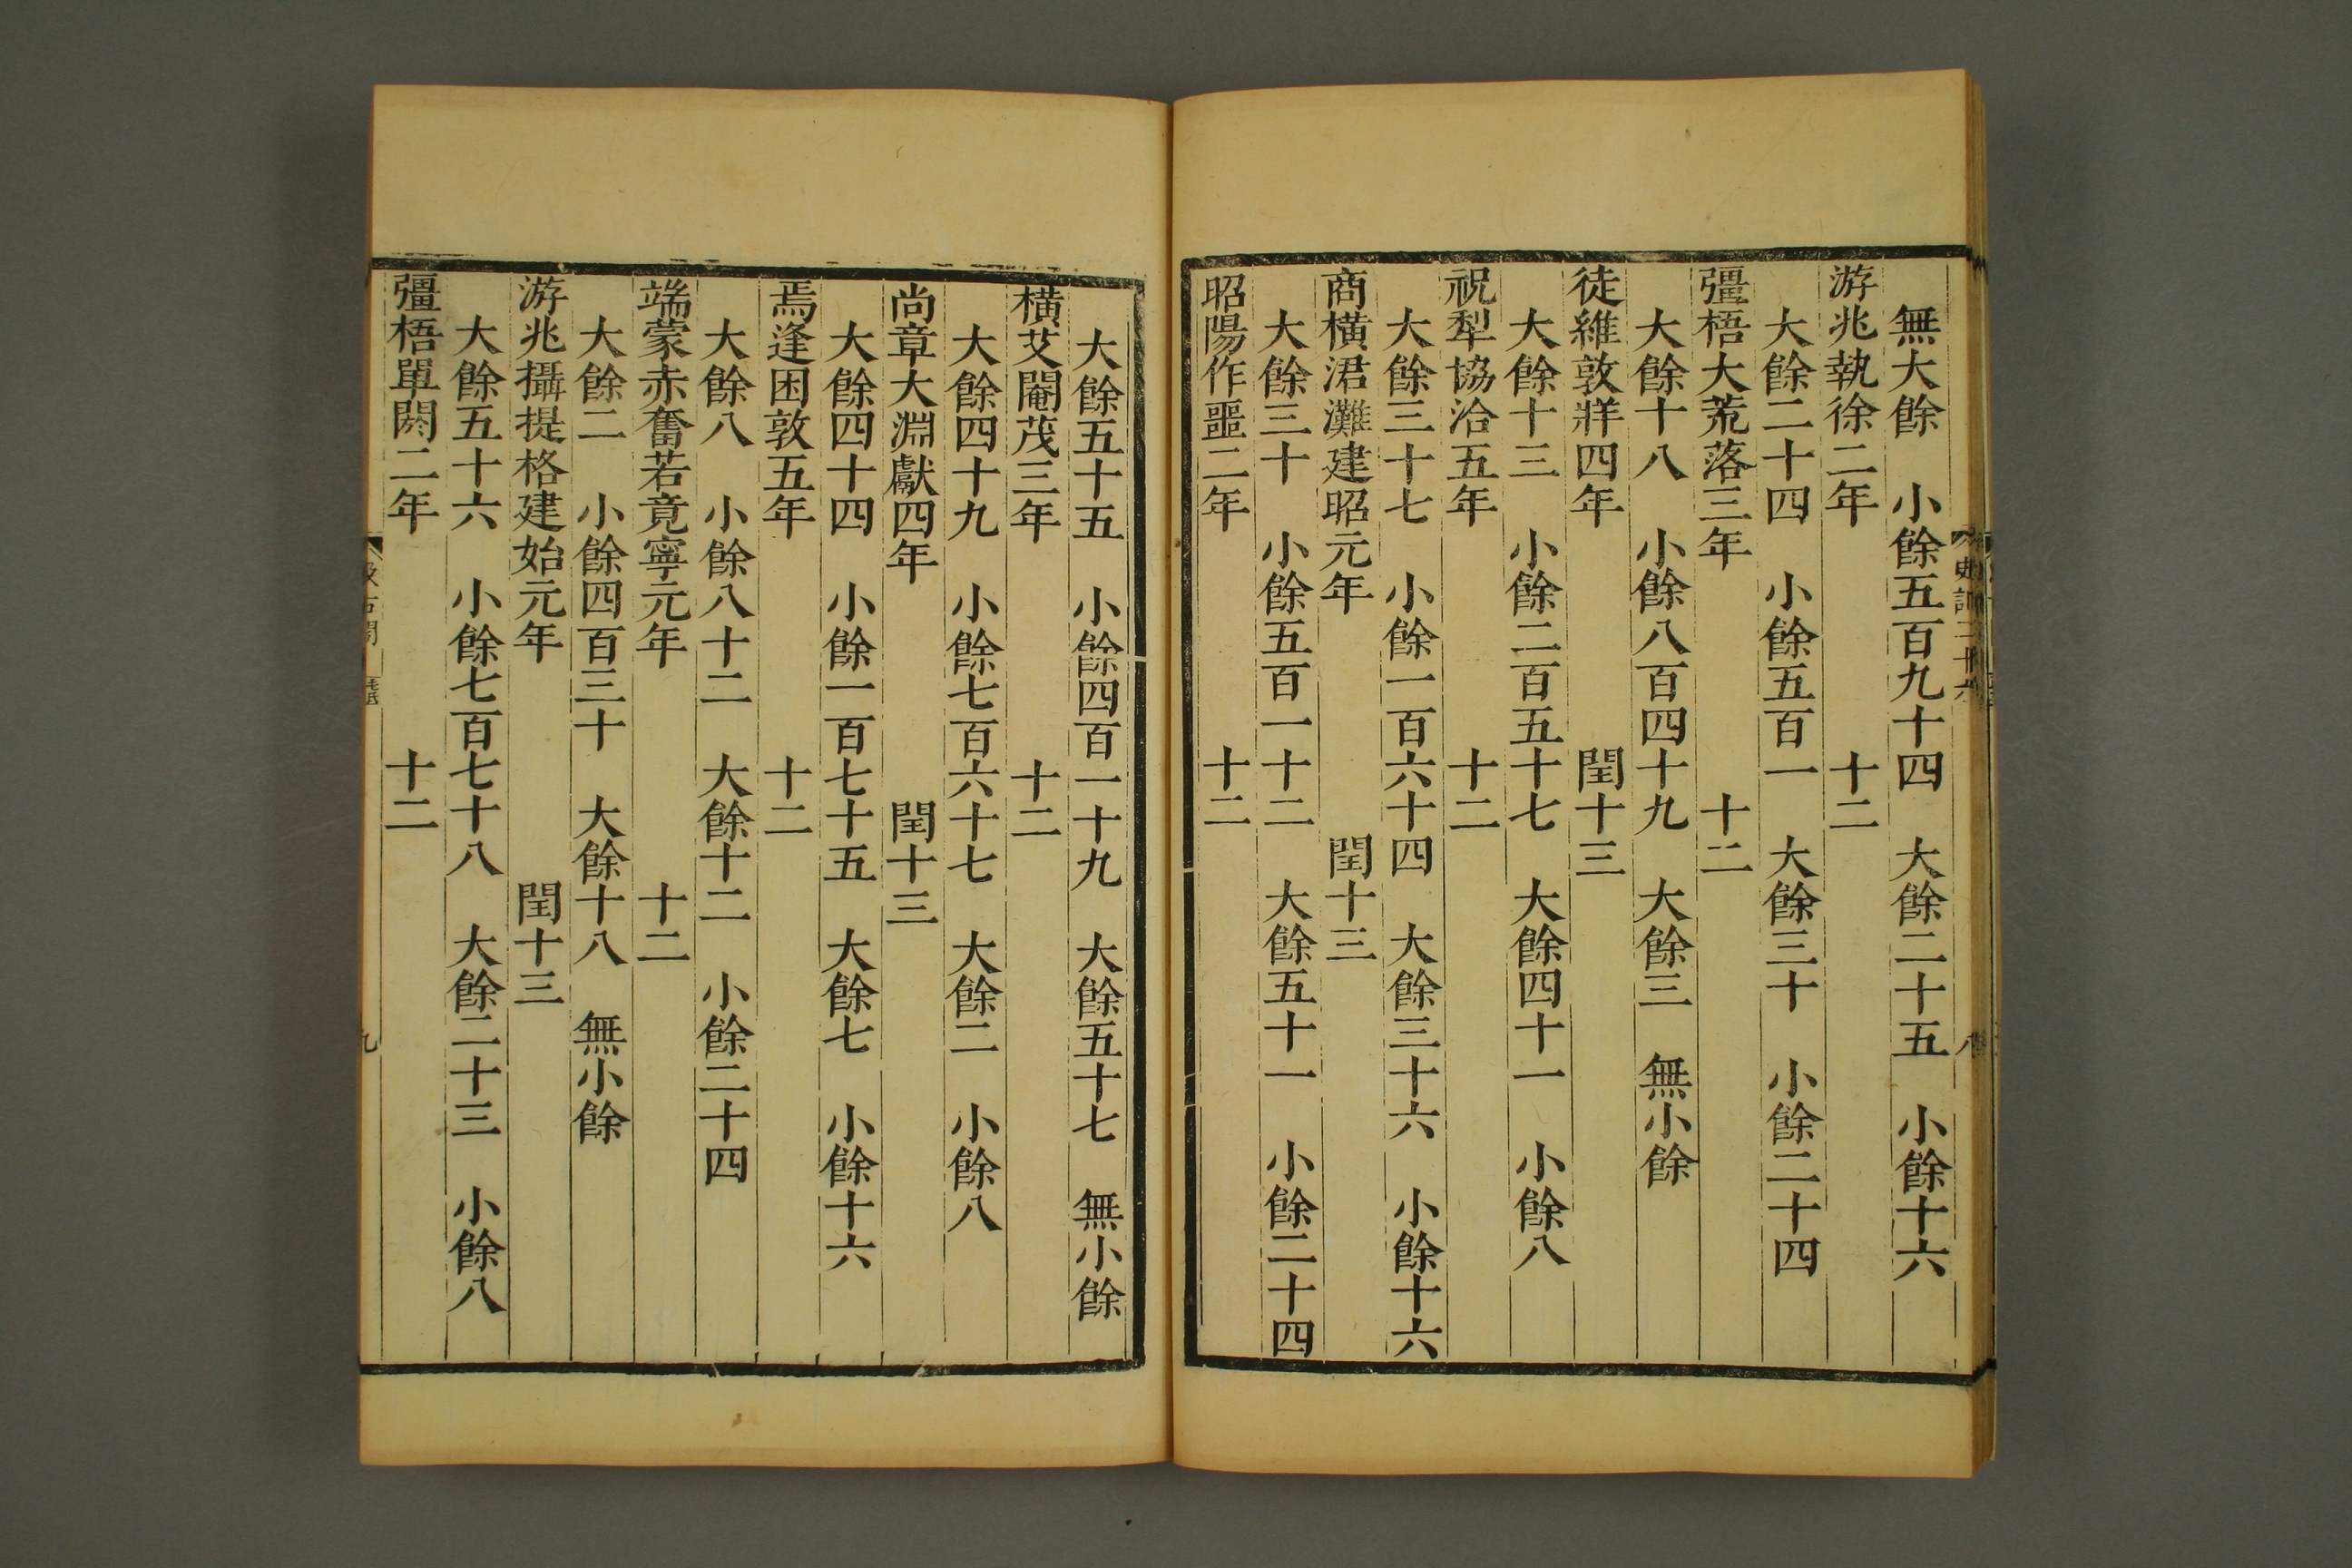 無大餘　小餘五百九十四　大餘二十五　小餘十六
游兆執徐二年　十二
大餘二十四　小餘五百一　大餘三十　小餘二十四
彊梧大荒落三年　十二
大餘十八　小餘八百四十九　大餘三　無小餘
徒維敦牂四年　閏十三
大餘十三　小餘二百五十七　大餘四十一　小餘八
祝犁協洽五年　十二
大餘三十七　小餘一百六十四　大餘三十六　小餘十六
商橫涒灘建昭元年　閏十三
大餘三十　小餘五百一十二　大餘五十一　小餘二十四
昭陽作噩二年　十二
大餘五十五　小餘四百一十九　大餘五十七　無小餘
橫艾閹茂三年　十二
大餘四十九　小餘七百六十七　大餘二　小餘八
尚章大淵獻四年　閏十三
大餘四十四　小餘一百七十五　大餘七　小餘十六
焉逢困敦五年　十二
大餘八　小餘八十二　大餘十二　小餘二十四
端蒙赤奮若竟寧元年　十二
大餘二　小餘四百三十　大餘十八　無小餘
游兆攝提格建始元年　閏十三
大餘五十六　小餘七百七十八　大餘二十三　小餘八
彊梧單閼二年　十二
史記二十六
八
九